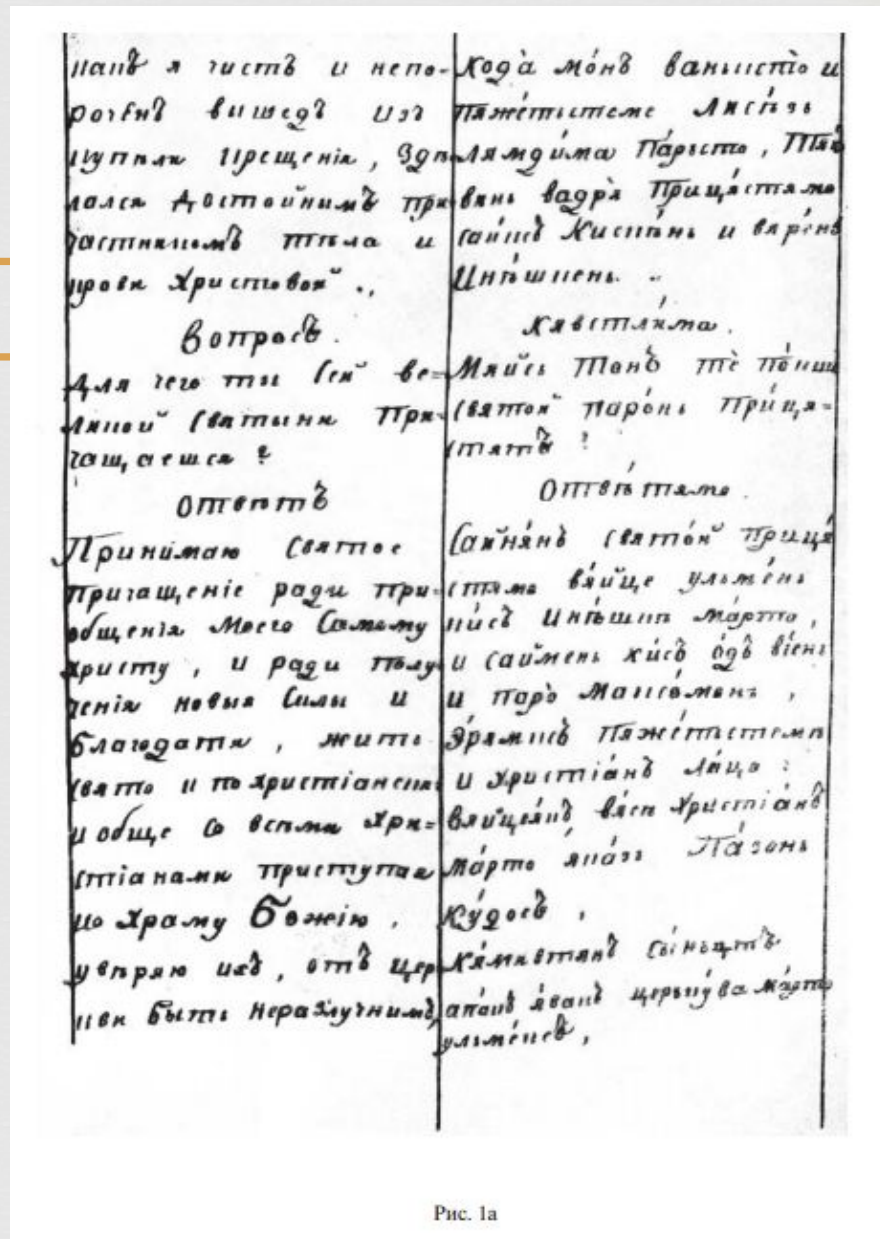 я чистъ и непо-
роченъ вишедъ изъ
купѣли крещенія, здѣ
лался достойнимъ при
частникомъ тѣла и
крови Христовой.,
Вопросъ.
Для чего ты сей ве=
ликой Святыни при-
чащаешся?
Отвѣтъ
Принимаю Святое
Причащеніе ради при-
общенія моего Самому
Христу, и ради полу
ченія новыя Силы и
благодати, жить
свято и по христіански
и обще со всѣми Хри=
стіанами приступая
ко храму Божію,
увѣряю ихъ, отъ цер
кви быть неразлучнимъ,
Кода̀ мо́нъ ваныстѐ и
пяже́тьстеме
лямди́ма па́рысто,
вадря̀ прица́стямо
и вяре́нь
Инѣшкень.
Кявстли́ма.
тонъ тѐ по́кш
святой паро́нь при́ця=
стятъ?
Отвѣ́тямо.
Сай́нянъ свято́й приця́
стямо вя́йце ульме́нь
ма́рто,
и кисъ о́дъ віень
и паро̀
Э́рямксъ пяже́тьстемѣ
и христіа́нъ ла́цо:
вя́сѣ христіа́нъ
ма́рто Па́зонь
Ку́досъ,
Кя́мивтянъ
я́вакъ церькува ма́рто
ульме́несъ,
Рис. 1а